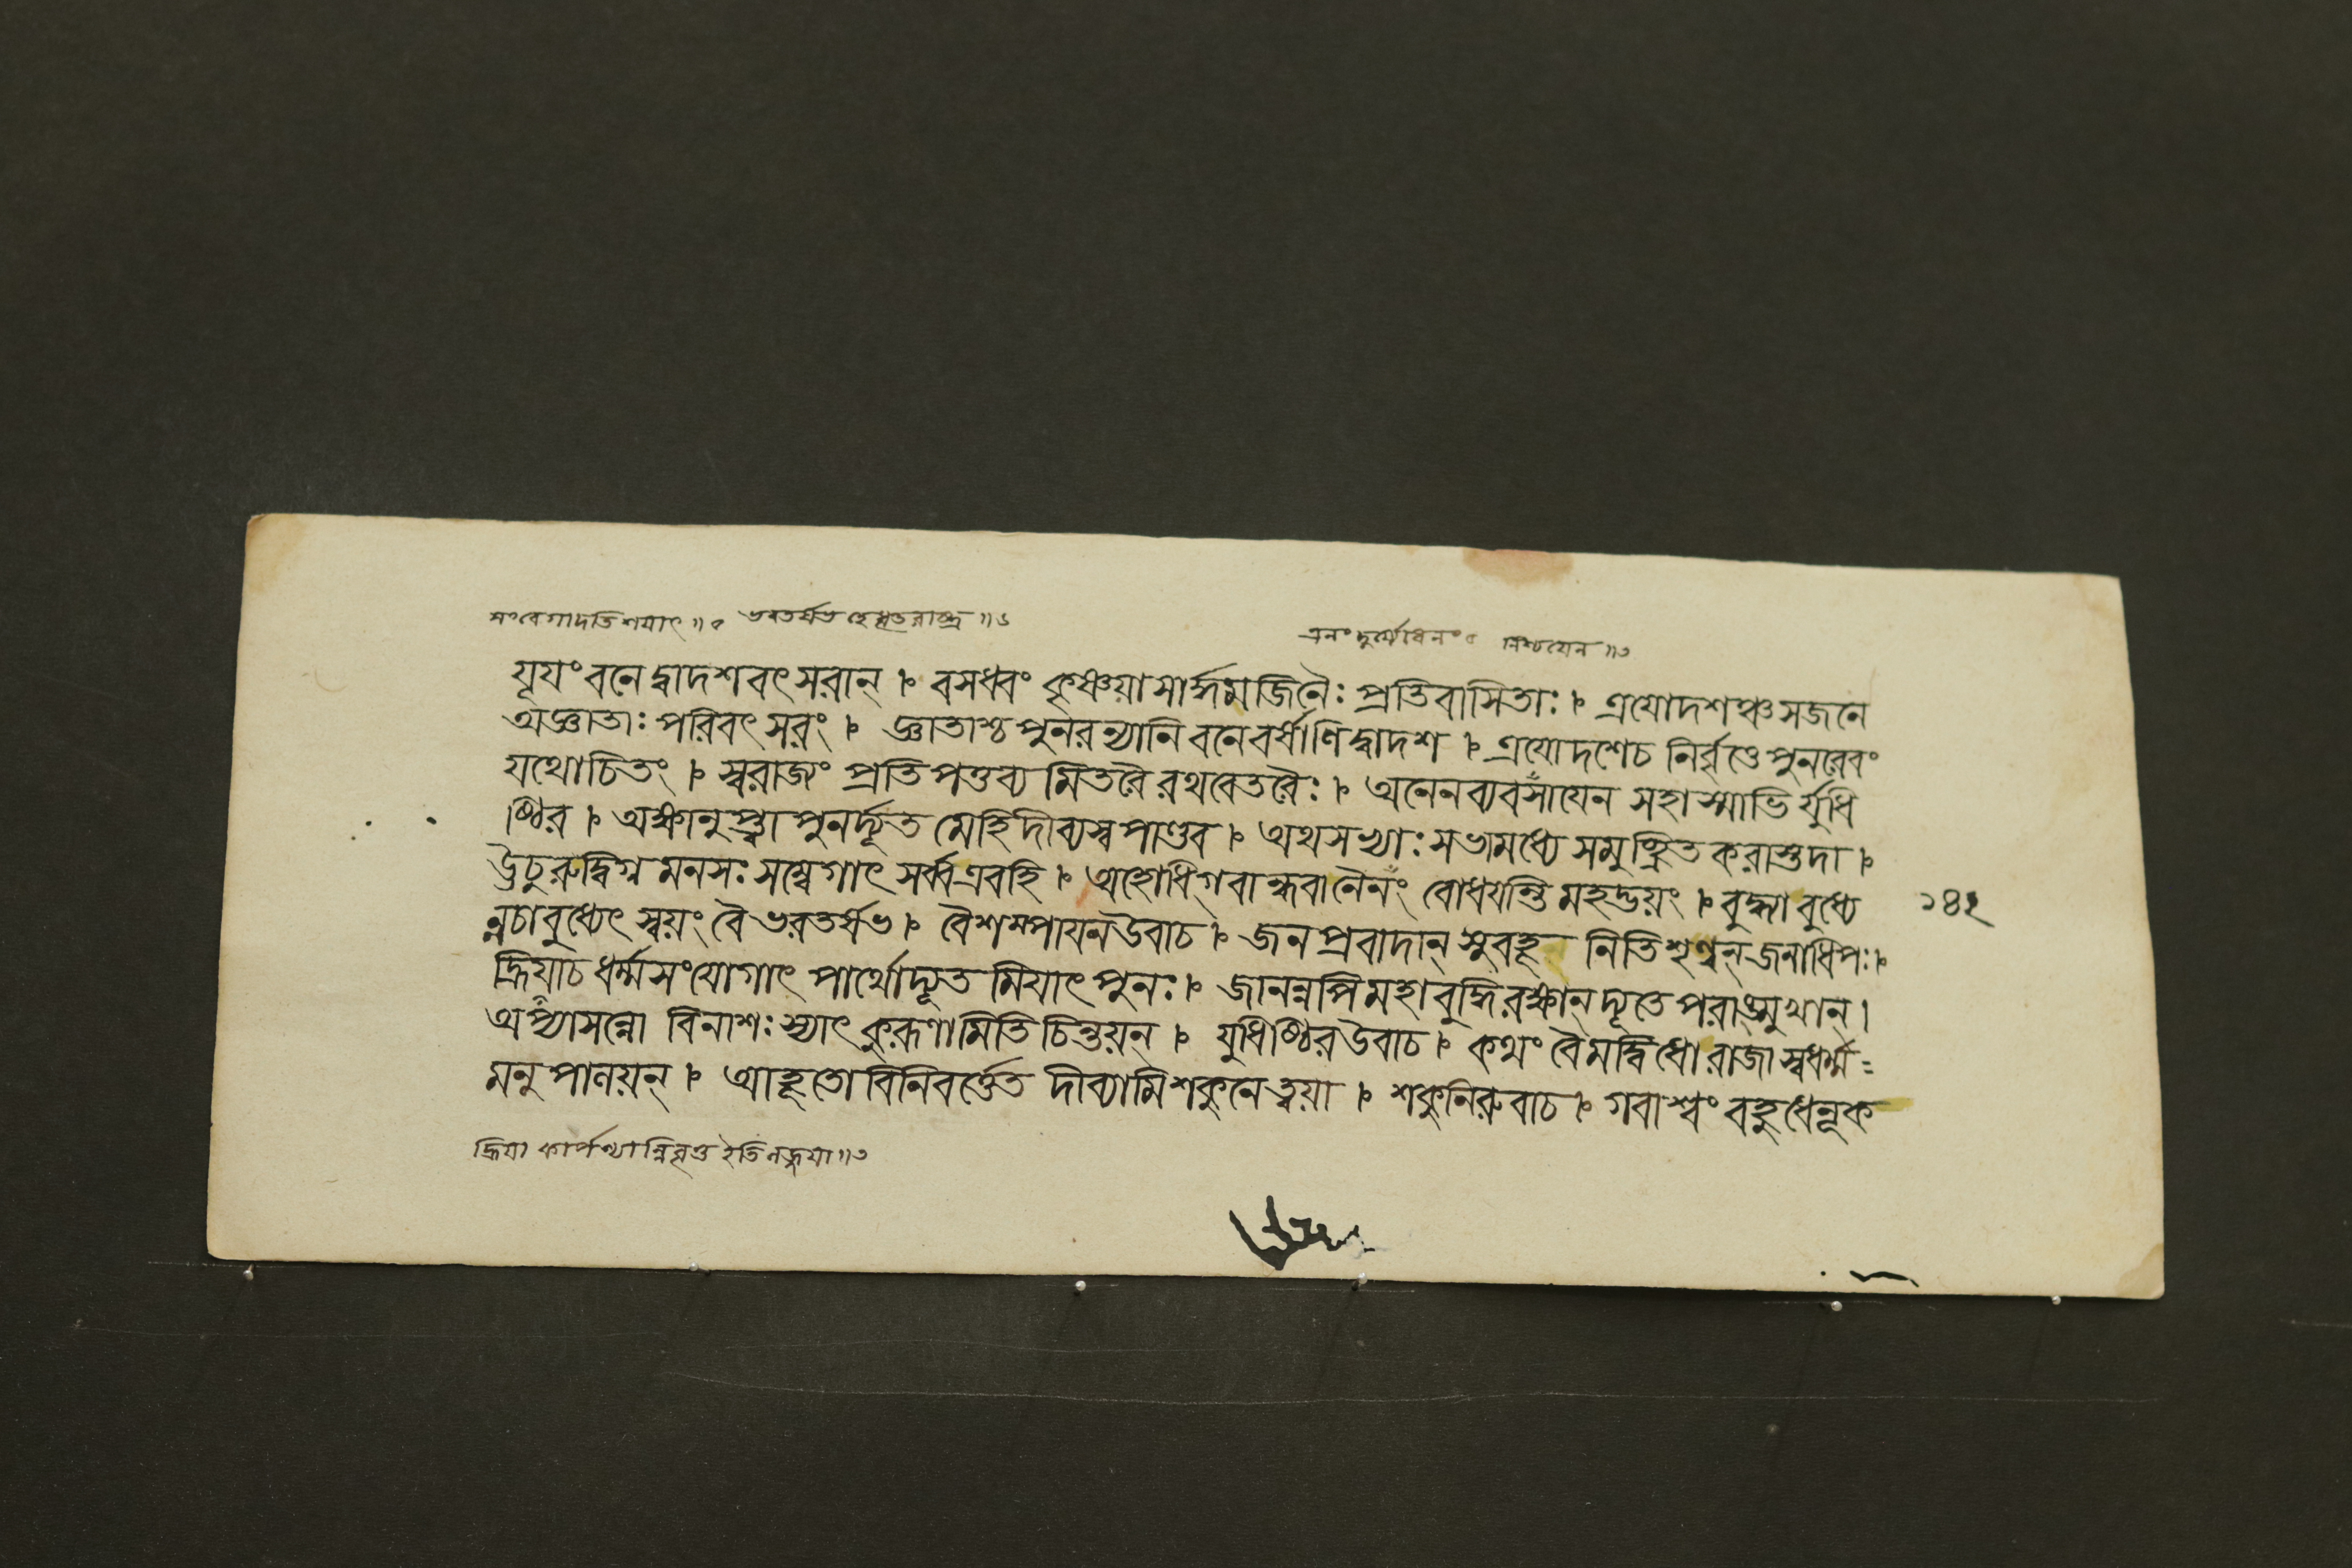 সংবেগাদতিশয়াৎ॥ ভরতর্ষভ হে ধৃতরাষ্ট্র॥৬
এনং দুর্য্যোধনং নিশ্চয়েন॥৩
যূযং বনে দ্বাদশবৎসরান্ । বসধ্বং কৃষ্ণয়া সার্দ্ধমজিনৈঃ প্রতিবাসিতাঃ । ত্রযোদশঞ্চ সজনে
অজ্ঞাতাঃ পরিবৎসরং । জ্ঞাতাশ্চ পুনরন্যানি বনে বর্ষাণি দ্বাদশ । ত্রযোদশেচ নির্বৃত্তে পুনরেবং
যথোচিতং । স্বরাজ্যং প্রতিপত্তব্য মিতরৈ রথবেতরৈঃ । অনেন ব্যবসাযেন সহাস্মাভি র্যুধি
ষ্ঠির । অক্ষানুপ্ত্বা পুনর্দ্যূত মেহি দীব্যস্ব পাণ্ডব । অথ সভ্যাঃ সভামধ্যে সমুচ্ছ্রিত করাস্তদা ।
ঊচুরুদ্বিগ্ন মনসঃ সম্বেগাৎ সর্ব্বএবহি । অহোধিগ্বান্ধবানৈনং বোধযন্তি মহদ্ভয়ং । বুদ্ধ্যা বুধ্যে
ন্নচাবুধ্যেৎ স্বয়ং বৈ ভরতর্ষভ । বৈশম্পাযনউবাচ । জনপ্রবাদান্ সুবহূ নিতি শৃণ্বন্ জনাধিপঃ ।
হ্রিযাচ ধর্ম্মসংযোগাৎ পার্থোদ্যূত মিযাৎ পুনঃ । জানন্নপি মহাবুদ্ধিরক্ষান্ দ্যূতে পরাঙ্মুখান্ ।
অপ্যাসন্নো বিনাশঃ স্যাৎ কুরূণামিতি চিন্তয়ন্ । যুধিষ্ঠিরউবাচ । কথং বৈ মদ্বিধো রাজা স্বধর্ম্ম=
মনুপানয়ন্ । আহূতো বিনিবর্ত্তেত দীব্যামি শকুনে ত্বয়া । শকুনিরুবাচ । গবাশ্বং বহুধেনূক
১৪২
হ্রিয়া কার্পণ্যান্নিবৃত্ত ইতি লজ্জয়া॥৩